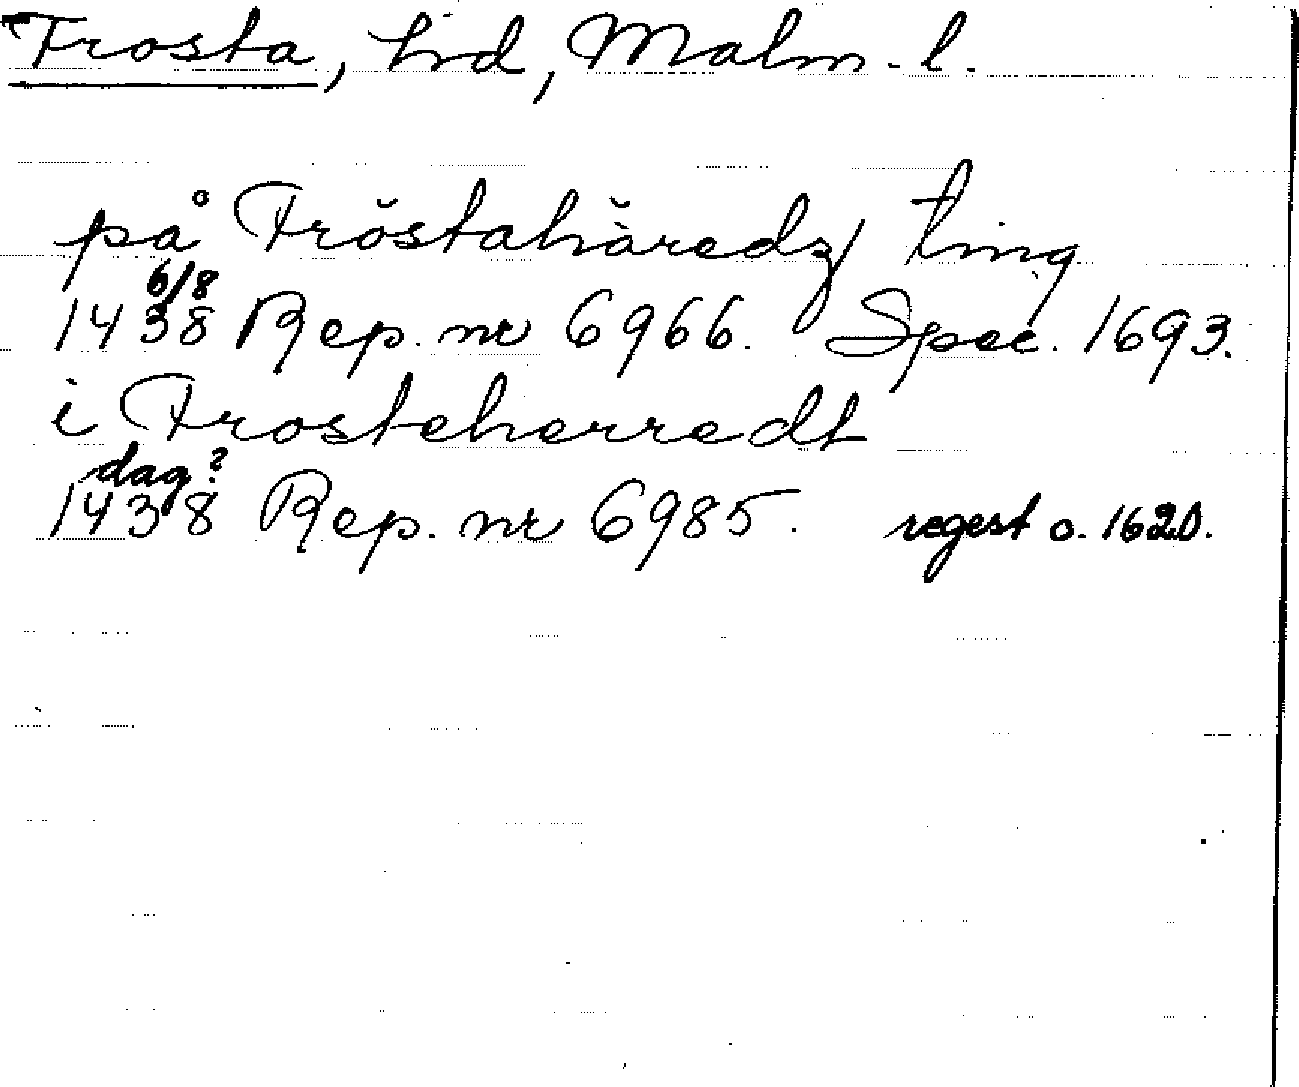 Frosta, hd, Malm. l.
på Fröstahäredz Ting
6/8
1438 Rep. nr 6966. Spec. 1693.
i Frosteherredt
dag?
1438 Rep. nr 6985. regest o. 1620.